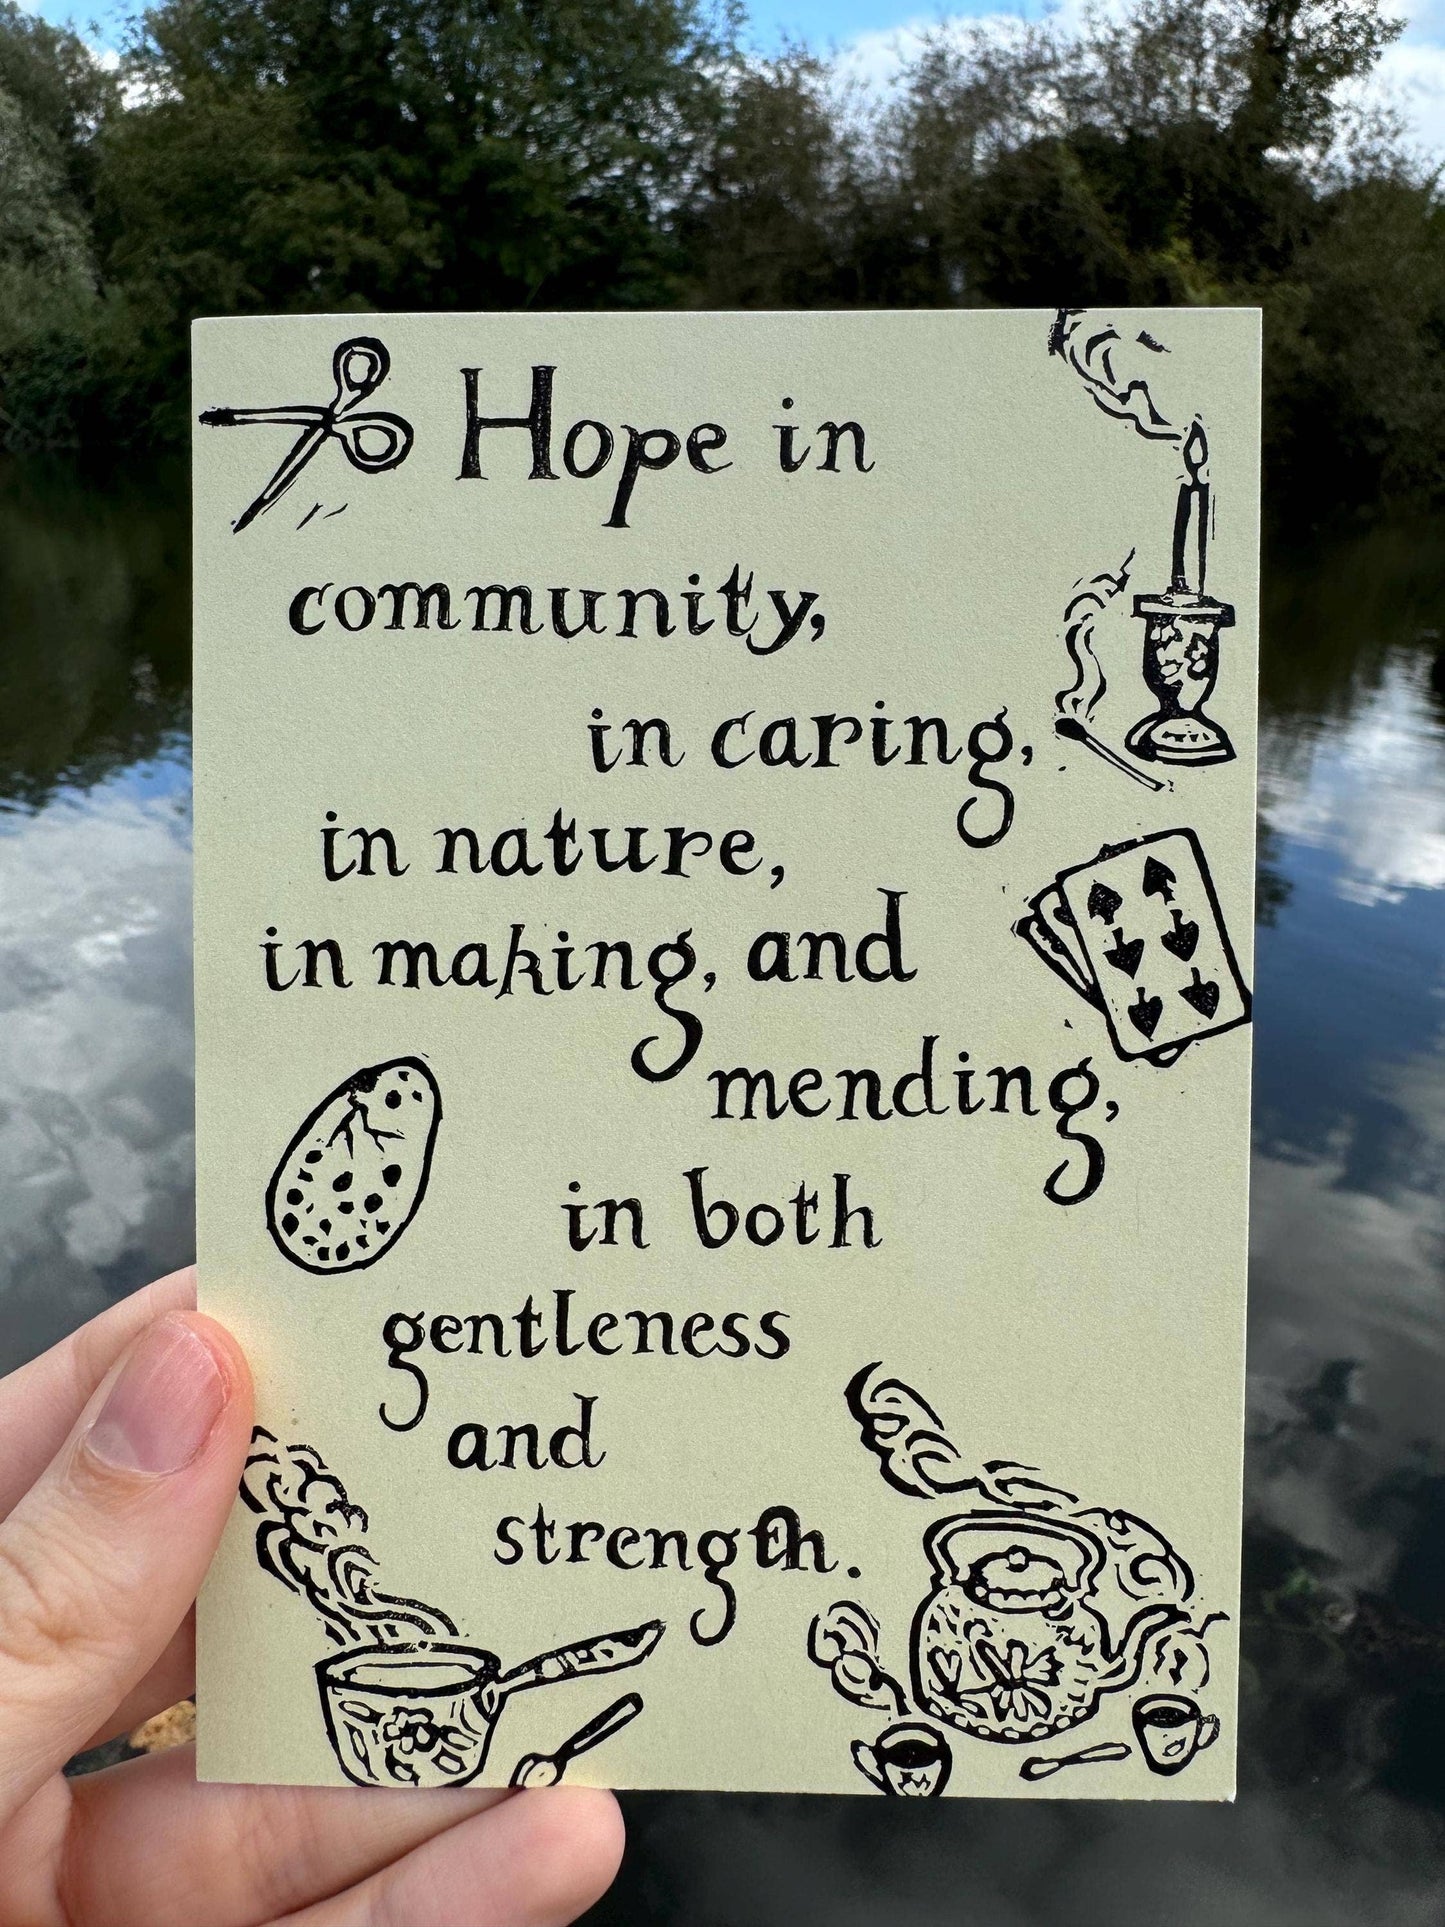 Hope in
community,
in caring,
in nature,
in making, and
mending,
in both
gentleness
and
strength.